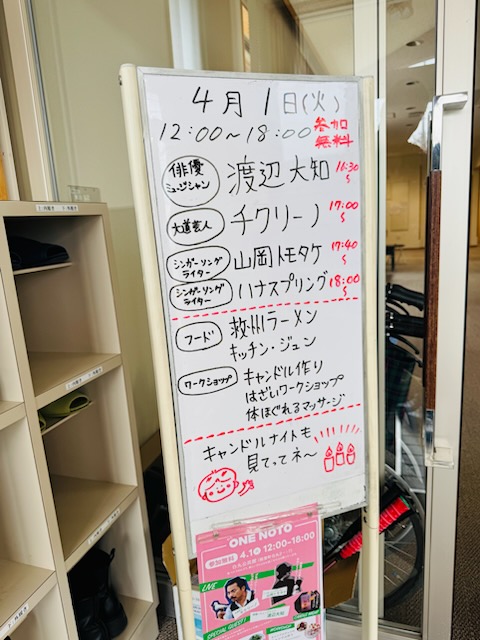 4月1日(火)
12:00～18:00 参加無料
俳優 ミュージシャン 渡辺大知 16:30～
大道芸人 チクリーノ 17:00～
シンガーソングライター 山岡トモタケ 17:40～
シンガーソングライター ハナスプリング 18:00～
フード 救州ラーメン
キッチン・ジュン
ワークショップ キャンドル作り
はざいワークショップ
体ほぐれるマッサージ
キャンドルナイトも
見てってネ～
ONE NOTO
参加無料 4.1 12:00-18:00
LIVE
SPECIAL GUEST
渡辺大知
WORKSHOP